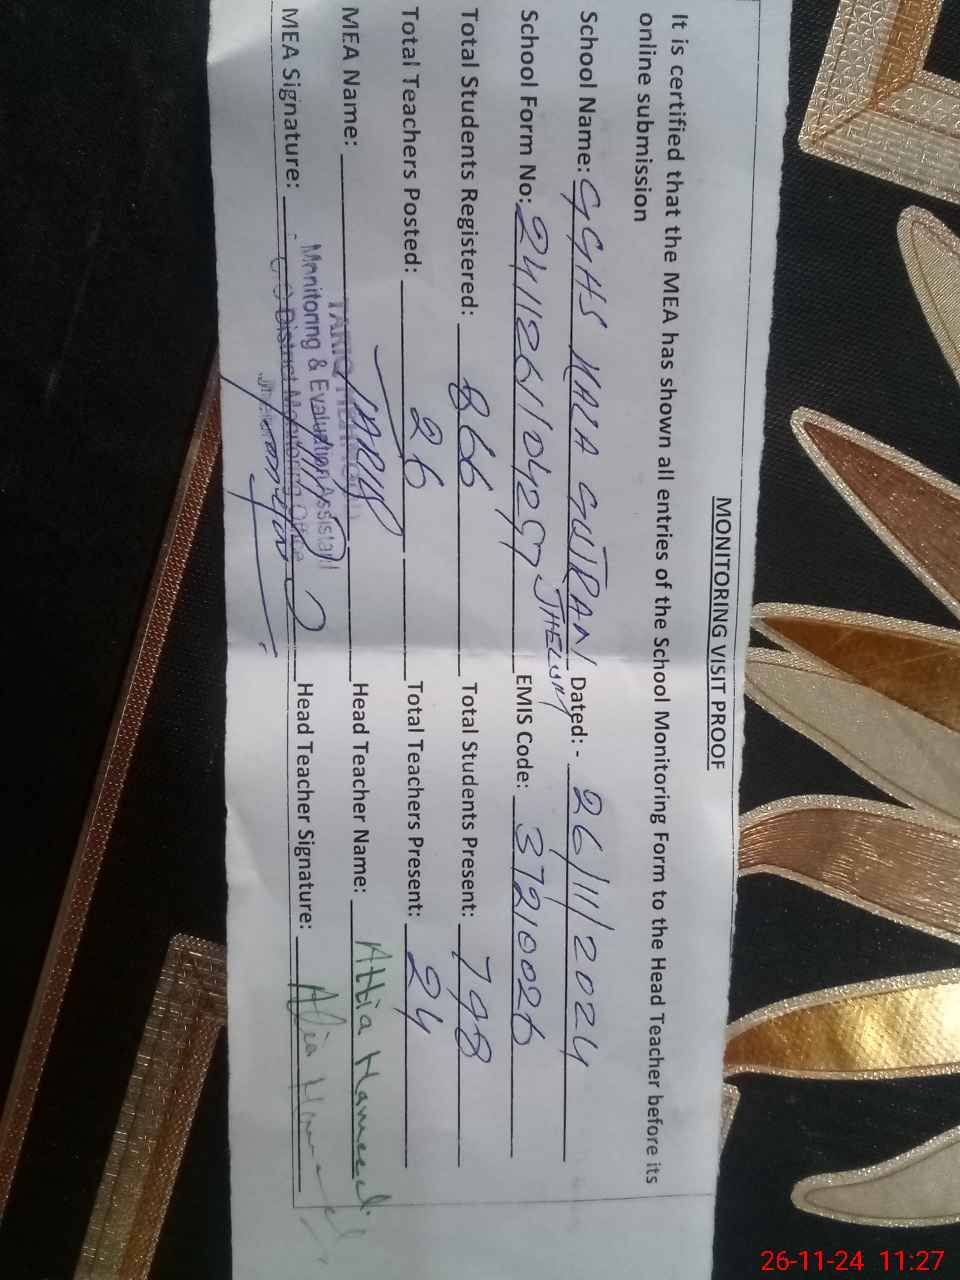 MONITORING VISIT PROOF
It is certified that the MEA has shown all entries of the School Monitoring Form to the Head Teacher before its
online submission
School Name: GGHS KALA GUJRAN JHELUM Dated: - 26/11/2024
School Form No: EMIS Code: 37210026
Total Students Registered: 866 Total Students Present: 798
Total Teachers Posted: 26 Total Teachers Present: 24
MEA Name: TARIQ Head Teacher Name: Attia Hameed
Monitoring & Evaluation Assistant
MEA Signature: Head Teacher Signature: Attia Hameed
O/O District Monitoring Office
Jhelum
26-11-24 11:27